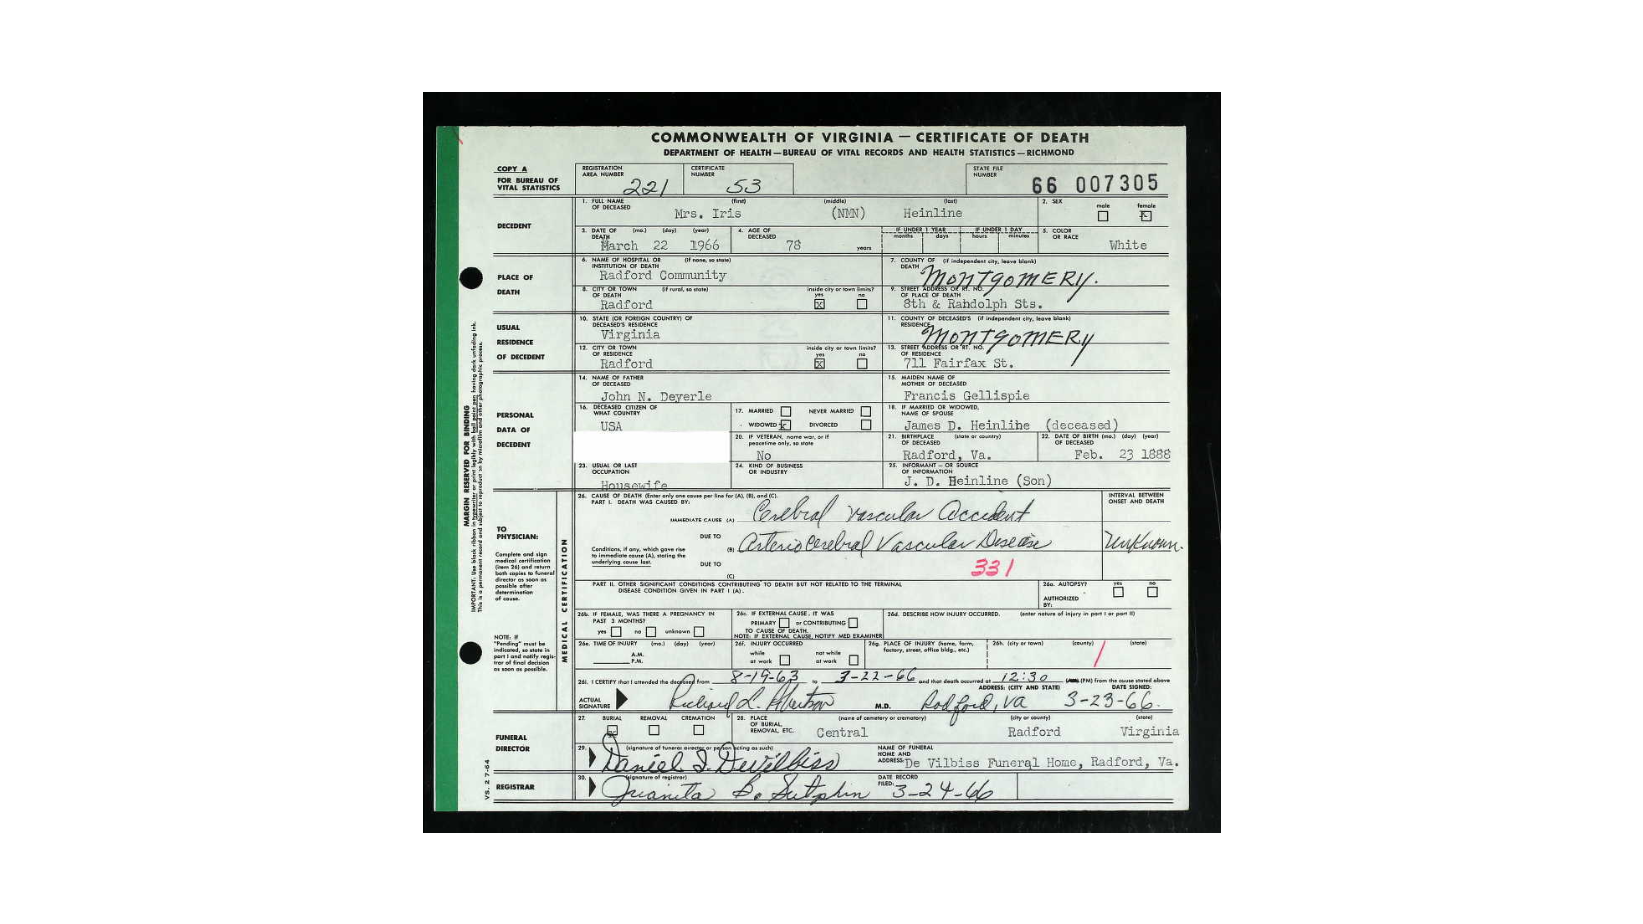 COMMONWEALTH OF VIRGINIA — CERTIFICATE OF DEATH
DEPARTMENT OF HEALTH—BUREAU OF VITAL RECORDS AND HEALTH STATISTICS—RICHMOND
COPY A
FOR BUREAU OF VITAL STATISTICS
REGISTRATION AREA NUMBER 221
CERTIFICATE NUMBER 53
STATE FILE NUMBER 66 007305
DECEDENT
1. FULL NAME OF DECEASED (first) (middle) (last)
Mrs. Iris (NMN) Heinline
2. SEX male female x
3. DATE OF DEATH (mo.) (day) (year)
March 22 1966
4. AGE OF DECEASED 78 years
IF UNDER 1 YEAR months days
IF UNDER 1 DAY hours minutes
5. COLOR OR RACE White
PLACE OF DEATH
6. NAME OF HOSPITAL OR INSTITUTION OF DEATH (if none, so state)
Radford Community
7. COUNTY OF DEATH (if independent city, leave blank)
MONTGOMERY.
8. CITY OR TOWN OF DEATH (if rural, so state) inside city or town limits? yes x no
Radford
9. STREET ADDRESS OR RT. NO. OF PLACE OF DEATH
8th & Randolph Sts.
USUAL RESIDENCE OF DECEDENT
10. STATE (OR FOREIGN COUNTRY) OF DECEASED'S RESIDENCE
Virginia
11. COUNTY OF DECEASED'S RESIDENCE (if independent city, leave blank)
MONTGOMERY
12. CITY OR TOWN OF RESIDENCE inside city or town limits? yes x no
Radford
13. STREET ADDRESS OR RT. NO. OF RESIDENCE
711 Fairfax St.
PERSONAL DATA OF DECEDENT
14. NAME OF FATHER OF DECEASED
John N. Deyerle
15. MAIDEN NAME OF MOTHER OF DECEASED
Francis Gellispie
16. DECEASED CITIZEN OF WHAT COUNTRY
USA
17. MARRIED NEVER MARRIED
WIDOWED x DIVORCED
18. IF MARRIED OR WIDOWED, NAME OF SPOUSE
James D. Heinline (deceased)
20. IF VETERAN, name war, or if peacetime only, so state
No
21. BIRTHPLACE OF DECEASED (state or country)
Radford, Va.
22. DATE OF BIRTH OF DECEASED (mo.) (day) (year)
Feb. 23 1888
23. USUAL OR LAST OCCUPATION
Housewife
24. KIND OF BUSINESS OR INDUSTRY
25. INFORMANT — OR SOURCE OF INFORMATION
J. D. Heinline (Son)
MEDICAL CERTIFICATION
TO PHYSICIAN:
Complete and sign medical certification (item 26) and return both copies to funeral director as soon as possible after determination of cause.
NOTE: IF "Pending" must be indicated, so state in part I and notify registrar of final decision as soon as possible.
26. CAUSE OF DEATH (Enter only one cause per line for (A), (B), and (C).
PART I. DEATH WAS CAUSED BY:
INTERVAL BETWEEN ONSET AND DEATH
IMMEDIATE CAUSE (A) Cerebral Vascular Accident
DUE TO
Conditions, if any, which gave rise to immediate cause (A), stating the underlying cause last.
(B) Arteriocerebral Vascular Disease Unknown.
DUE TO 331
(C)
PART II. OTHER SIGNIFICANT CONDITIONS CONTRIBUTING TO DEATH BUT NOT RELATED TO THE TERMINAL DISEASE CONDITION GIVEN IN PART I (A).
26a. AUTOPSY? yes no
AUTHORIZED BY:
26b. IF FEMALE, WAS THERE A PREGNANCY IN PAST 3 MONTHS?
yes no unknown
26c. IF EXTERNAL CAUSE, IT WAS
PRIMARY or CONTRIBUTING
TO CAUSE OF DEATH.
NOTE: IF EXTERNAL CAUSE, NOTIFY MED EXAMINER
26d. DESCRIBE HOW INJURY OCCURRED. (enter nature of injury in part I or part II)
26e. TIME OF INJURY (mo.) (day) (year)
A.M.
P.M.
26f. INJURY OCCURRED
while at work not while at work
26g. PLACE OF INJURY (home, farm, factory, street, office bldg., etc.)
26h. (city or town) (county) (state)
26i. I CERTIFY that I attended the deceased from 8-19-63 to 3-22-66 and that death occurred at 12:30 (PM) from the cause stated above
ACTUAL SIGNATURE Richard L. M.D.
ADDRESS: (CITY AND STATE) Radford, Va
DATE SIGNED: 3-23-66.
FUNERAL DIRECTOR
27. BURIAL x REMOVAL CREMATION
28. PLACE OF BURIAL, REMOVAL, ETC. (name of cemetery or crematory) (city or county) (state)
Central Radford Virginia
29. (signature of funeral director or person acting as such)
Daniel S. DeVilbiss
NAME OF FUNERAL HOME AND ADDRESS: De Vilbiss Funeral Home, Radford, Va.
REGISTRAR
30. (signature of registrar)
Juanita B. Sutphin
DATE RECORD FILED: 3-24-66
VS. 2 7-64
MARGIN RESERVED FOR BINDING
IMPORTANT: Use black ribbon in typewriter or print legibly with ball point pen having dark unfading ink.
This is a permanent record and subject to reproduction by microfilm and other photographic process.